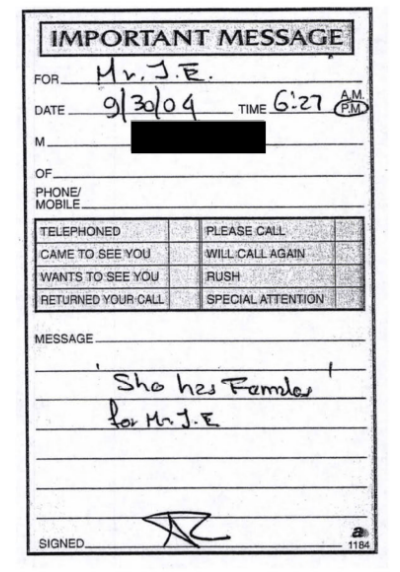 IMPORTANT MESSAGE
FOR Mr. J.E.
DATE 9/30/04 TIME 6:27 A.M.
P.M.
M
OF
PHONE/
MOBILE
TELEPHONED PLEASE CALL
CAME TO SEE YOU WILL CALL AGAIN
WANTS TO SEE YOU RUSH
RETURNED YOUR CALL SPECIAL ATTENTION
MESSAGE
She has Females
for Mr J.E
SIGNED
a
1184